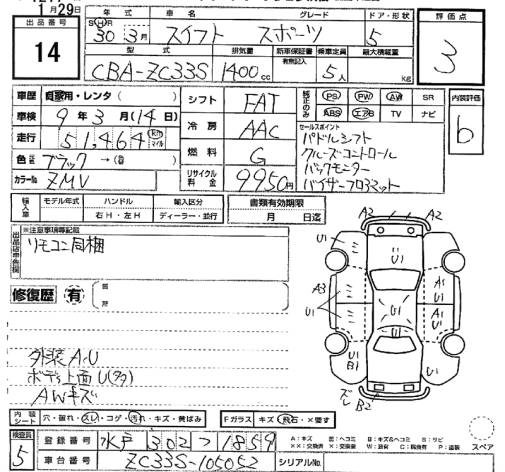 1月29日
出品番号
14
年式 車名 グレード ドア・形状
SHR 30 3月 スイフト スポーツ 5
型式 排気量 新車保証書 乗車定員 最大積載量
有無記入
CBA-ZC33S 1400cc 5人 kg
評価点
3
車歴 自家用・レンタ( )
車検 9年3月(14日)
走行 51,464 Km マイル
色 ブラック→( )
カラーNo ZMV
シフト FAT
冷房 AAC
燃料 G
リサイクル料金 9950円
純正のみ PS PW AW SR
ABS エアB TV ナビ
セールスポイント
パドルシフト
クルーズコントロール
バックモニター
バイザーフロアマット
内装評価
6
輸入車 モデル年式 ハンドル 輸入区分
右H・左H ディーラー・並行
書類有効期限
月 日迄
※注意事項等記載
リモコン同梱
修復歴 有
外装AU
ボディ上面U(多)
AWキズ
A2 A2
U1 U1
U1 A1
U1
A3 U1 A1
U1 U1
U1 U1
B1
ズレ B2
内装シート 穴・破れ・スレ・コゲ・汚れ・キズ・黄ばみ
Fガラス キズ・飛石・×要す
検査員
5
登録番号 水戸 302 つ 1859
車台番号 ZC33S-105052
シリアルNo.
A:キズ U:凹 B:キズ&ヘコミ S:サビ
スペア